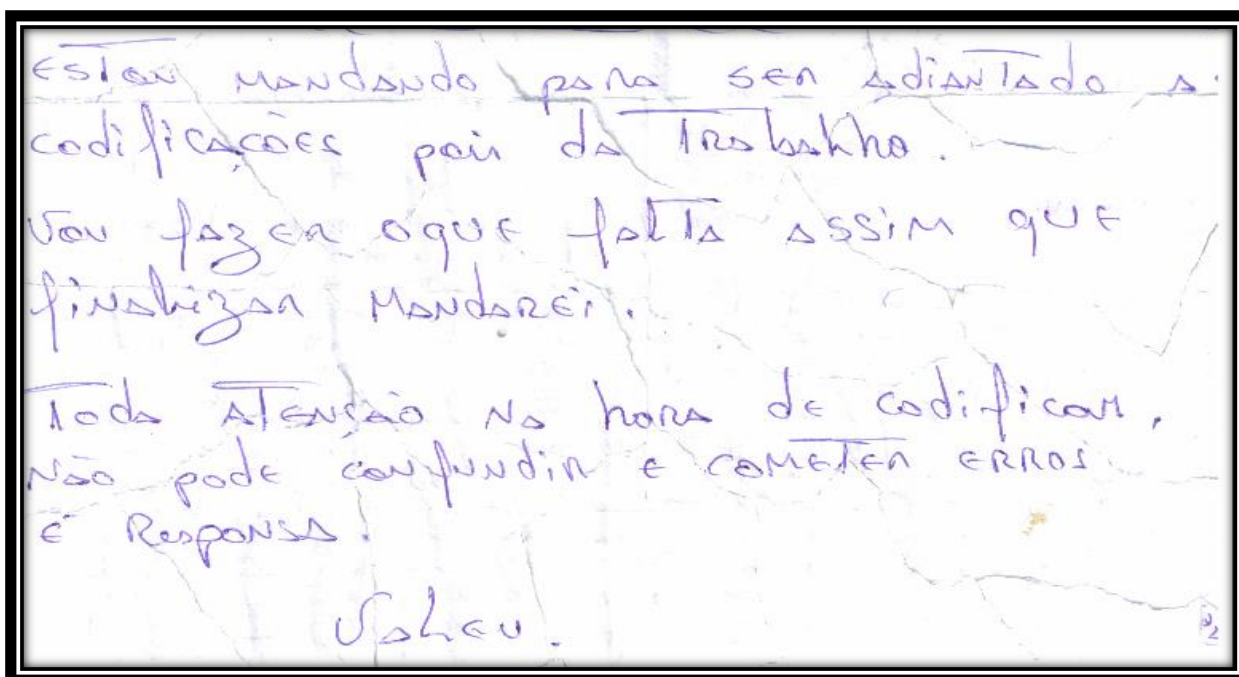 Estou mandando para ser adiantado a
codificações pois da Trabahho.
Vou fazer oque falta assim que
finalizar mandarei.
Toda Atensão na hora de codificar,
não pode confundir e cometer erros
é Responsa.
Valeu.